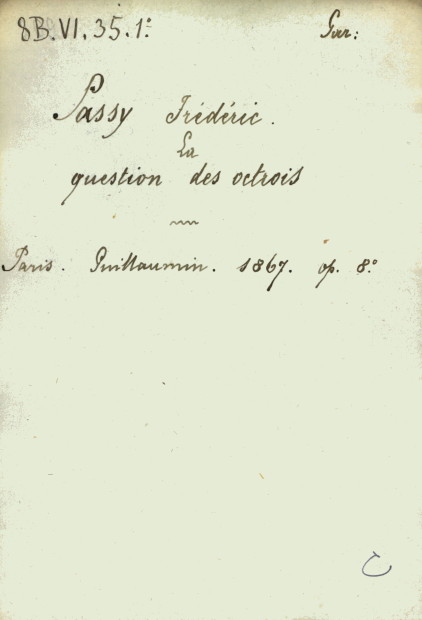 8B.VI.35.1º Gar:
Passy Frédéric.
La
question des octrois
Paris. Guillaumin. 1867. op. 8.º